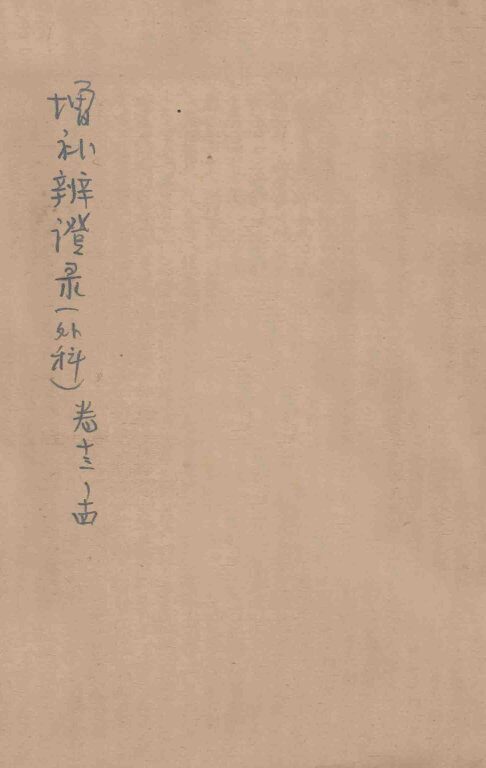 增补辨證录(外科)卷十三、十四